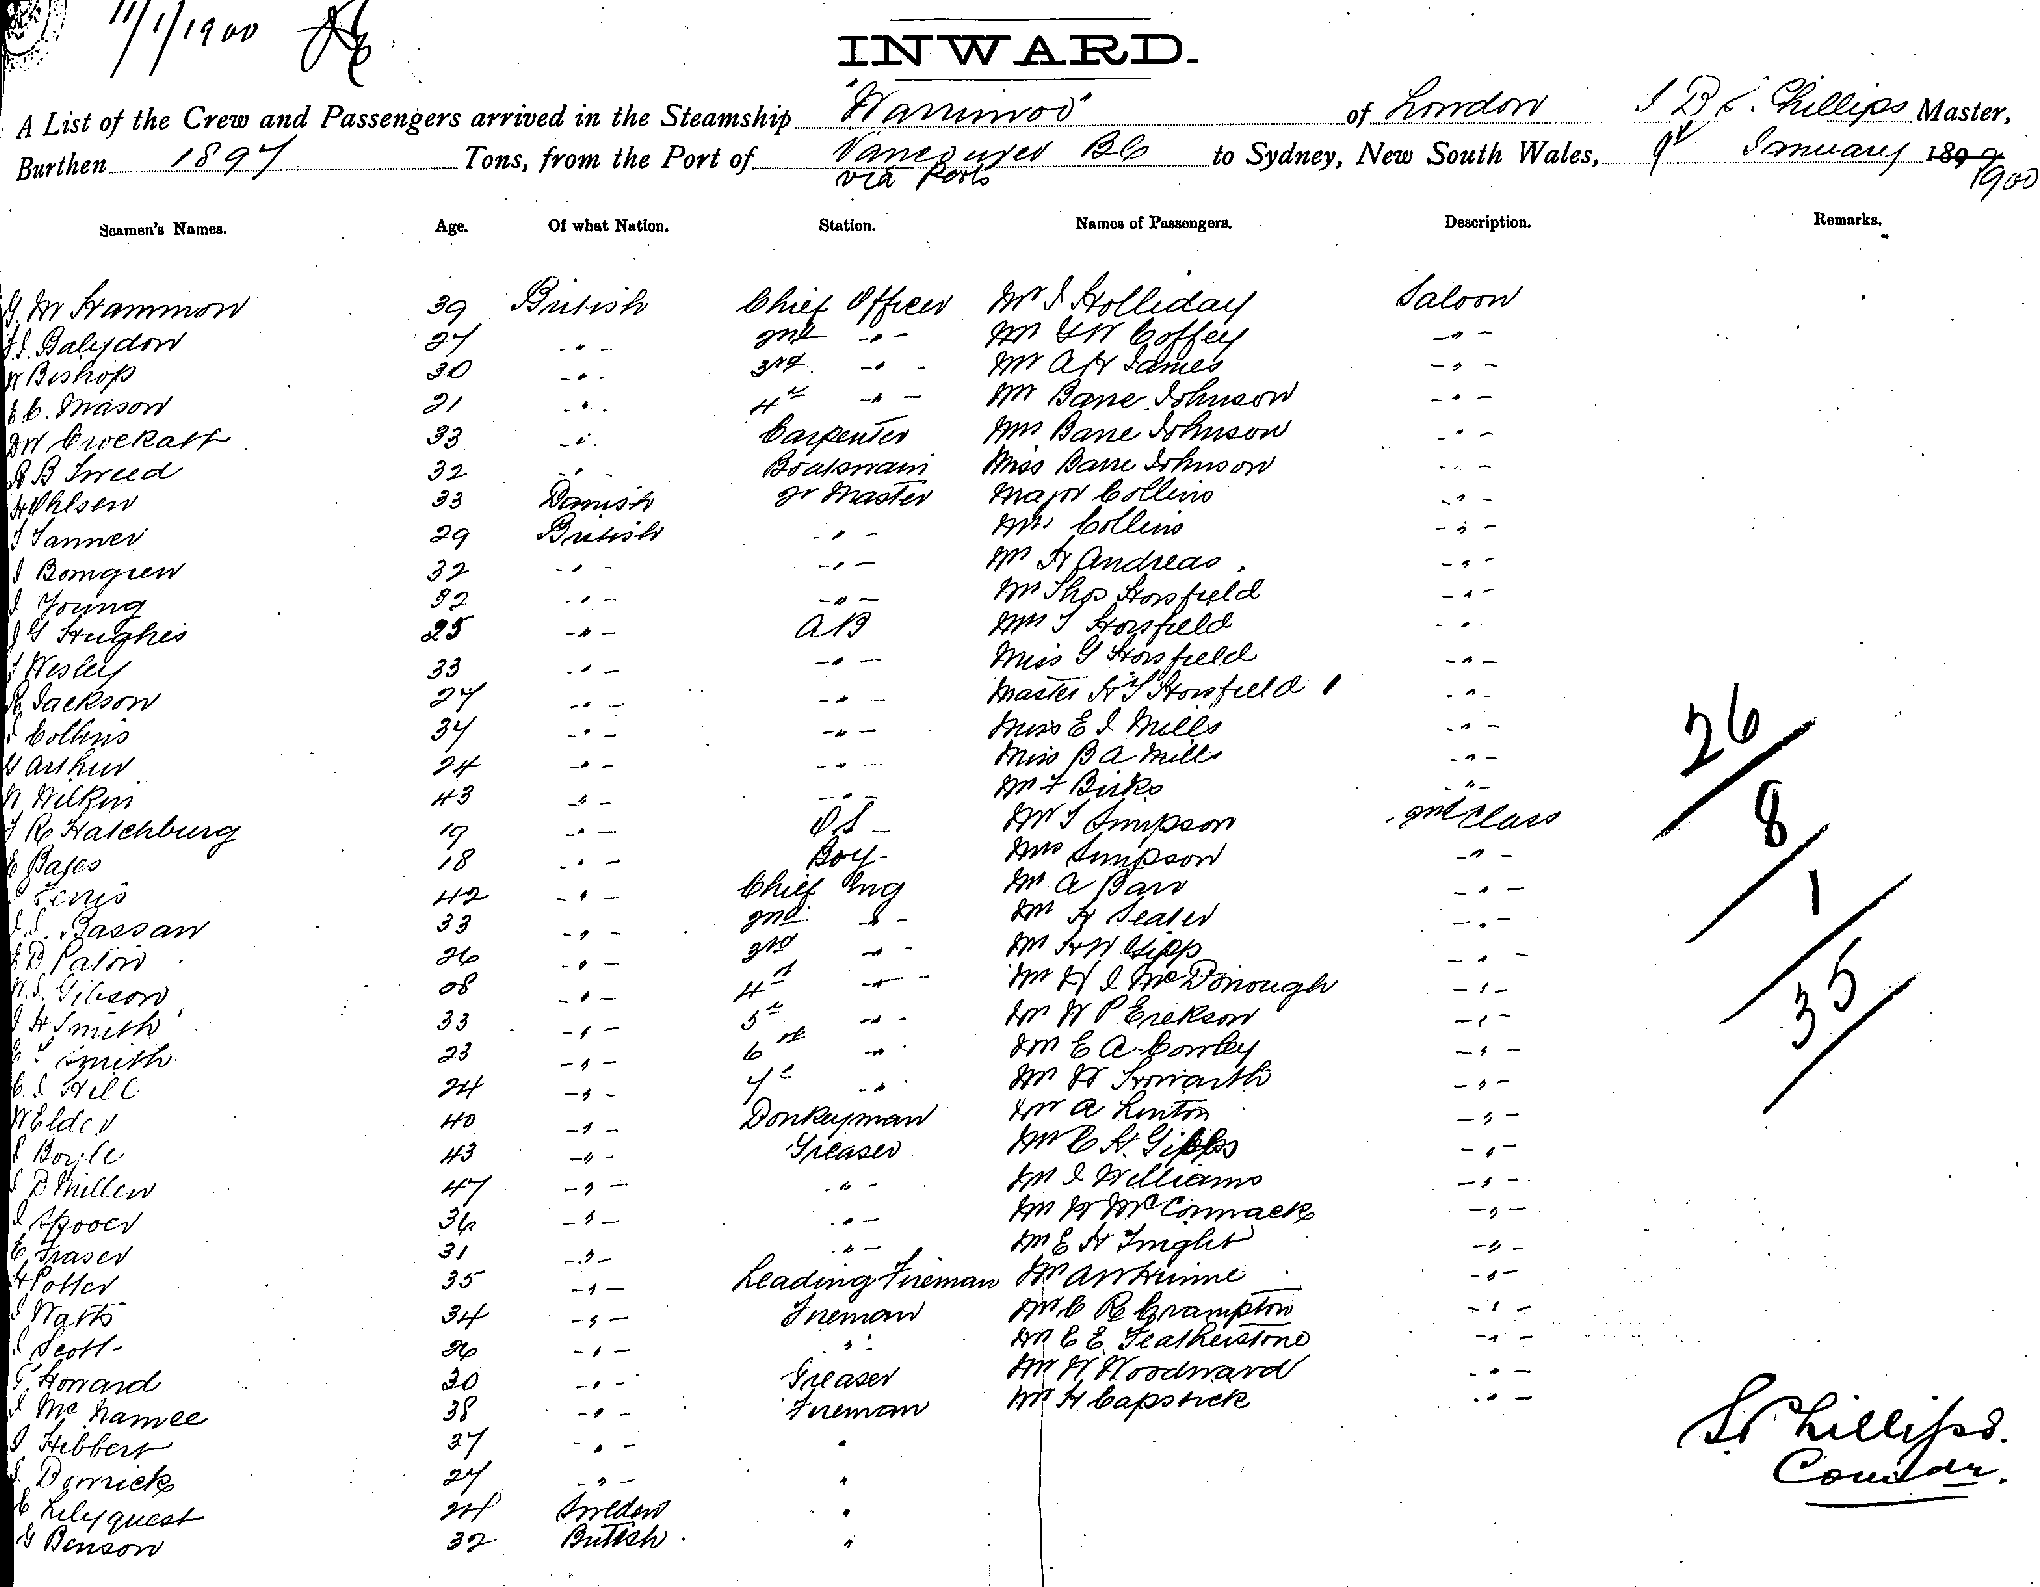 11/1/1900
INWARD.
A List of the Crew and Passengers arrived in the Steamship "Warrimoo" of London J D S. Phillips Master,
Burthen 1897 Tons, from the Port of Vancouver BC to Sydney, New South Wales, 9th January 1899 1900
via Ports
Seamen's Names. Age. Of what Nation. Station. Names of Passengers. Description. Remarks.
G. M Hammon 39 British Chief Officer Mr J Holliday Saloon
Balydon 27 -"- 2nd -"- Mr G W Coffey -"-
W Bishop 30 -"- 3rd -"- Mr A H James -"-
C. Mason 21 -"- 4th -"- Mr Bane Johnson -"-
Crockatt 33 -"- Carpenter Mrs Bane Johnson -"-
B Tweed 32 -"- Boatswain Miss Bane Johnson -"-
H Ohlsen 33 Danish Qr Master Major Collins -"-
Tanner 29 British -"- Mrs Collins -"-
J Bomgren 32 -"- -"- Mr H Andreas -"-
J Young 32 -"- -"- Mr Thos Horsfield -"-
J G Hughes 25 -"- AB Mrs T Horsfield -"-
Wesley 33 -"- -"- Miss G Horsfield -"-
R Jackson 27 -"- -"- Master H T Horsfield -"-
Collins 34 -"- -"- Miss E J Mills -"-
Arthur 24 -"- -"- Miss B A Mills -"-
W Wilkin 43 -"- -"- Mr F Birks -"-
R Hatchburg 19 -"- OS Mr T Simpson 2nd Class
E Bates 18 -"- Boy Mrs Simpson -"-
42 -"- Chief Eng Mr A Barr -"-
Bassan 33 -"- 2nd -"- Mr H Seater -"-
E D Paton 26 -"- 3rd -"- Mr H W Gipp -"-
Gibson 28 -"- 4th -"- Mr H J McDonough -"-
J H Smith 33 -"- 5th -"- Mr W P Erekson -"-
Smith 23 -"- 6th -"- Mr E A Cowley -"-
C. J Hill 24 -"- 7th -"- Mr H Howarth -"-
W Elder 40 -"- Donkeyman Mr A Linton -"-
Boyle 43 -"- Greaser Mr C H. Gibbs -"-
D Millen 47 -"- -"- Mr J Williams -"-
Spooer 36 -"- -"- Mr W McCormack -"-
E Fraser 31 -"- -"- Mr E H Tnight -"-
H Potter 35 -"- Leading Fireman Mr A W Hinne -"-
J Watts 34 -"- Fireman Mr C R Crampton -"-
J Scott 26 -"- " Mr C E Featherstone -"-
Howard 30 -"- Greaser Mr W Woodward -"-
J McNamee 38 -"- Fireman Mr H Capstick -"-
J Hibbert 37 -"- "
Dornick 27 -"- "
C Lilyquest 24 Sweden "
G Benson 32 British "
26
8
1
35
Phillips.
Comdr.